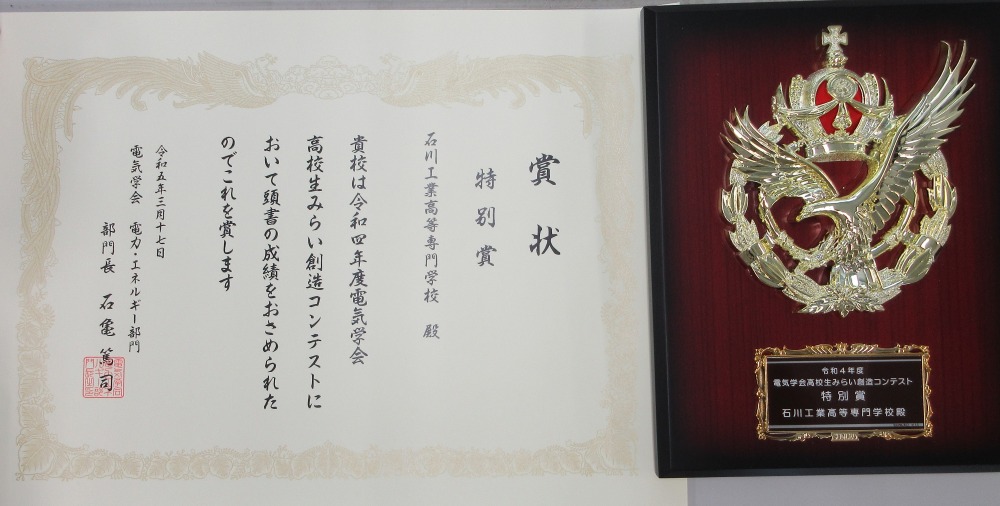 賞状
特別賞
石川工業高等専門学校 殿
貴校は令和四年度電気学会
高校生みらい創造コンテストに
おいて頭書の成績をおさめられた
のでこれを賞します
令和五年三月十七日
電気学会 電力・エネルギー部門
部門長 石亀篤司
令和4年度
電気学会高校生みらい創造コンテスト
特別賞
石川工業高等専門学校殿